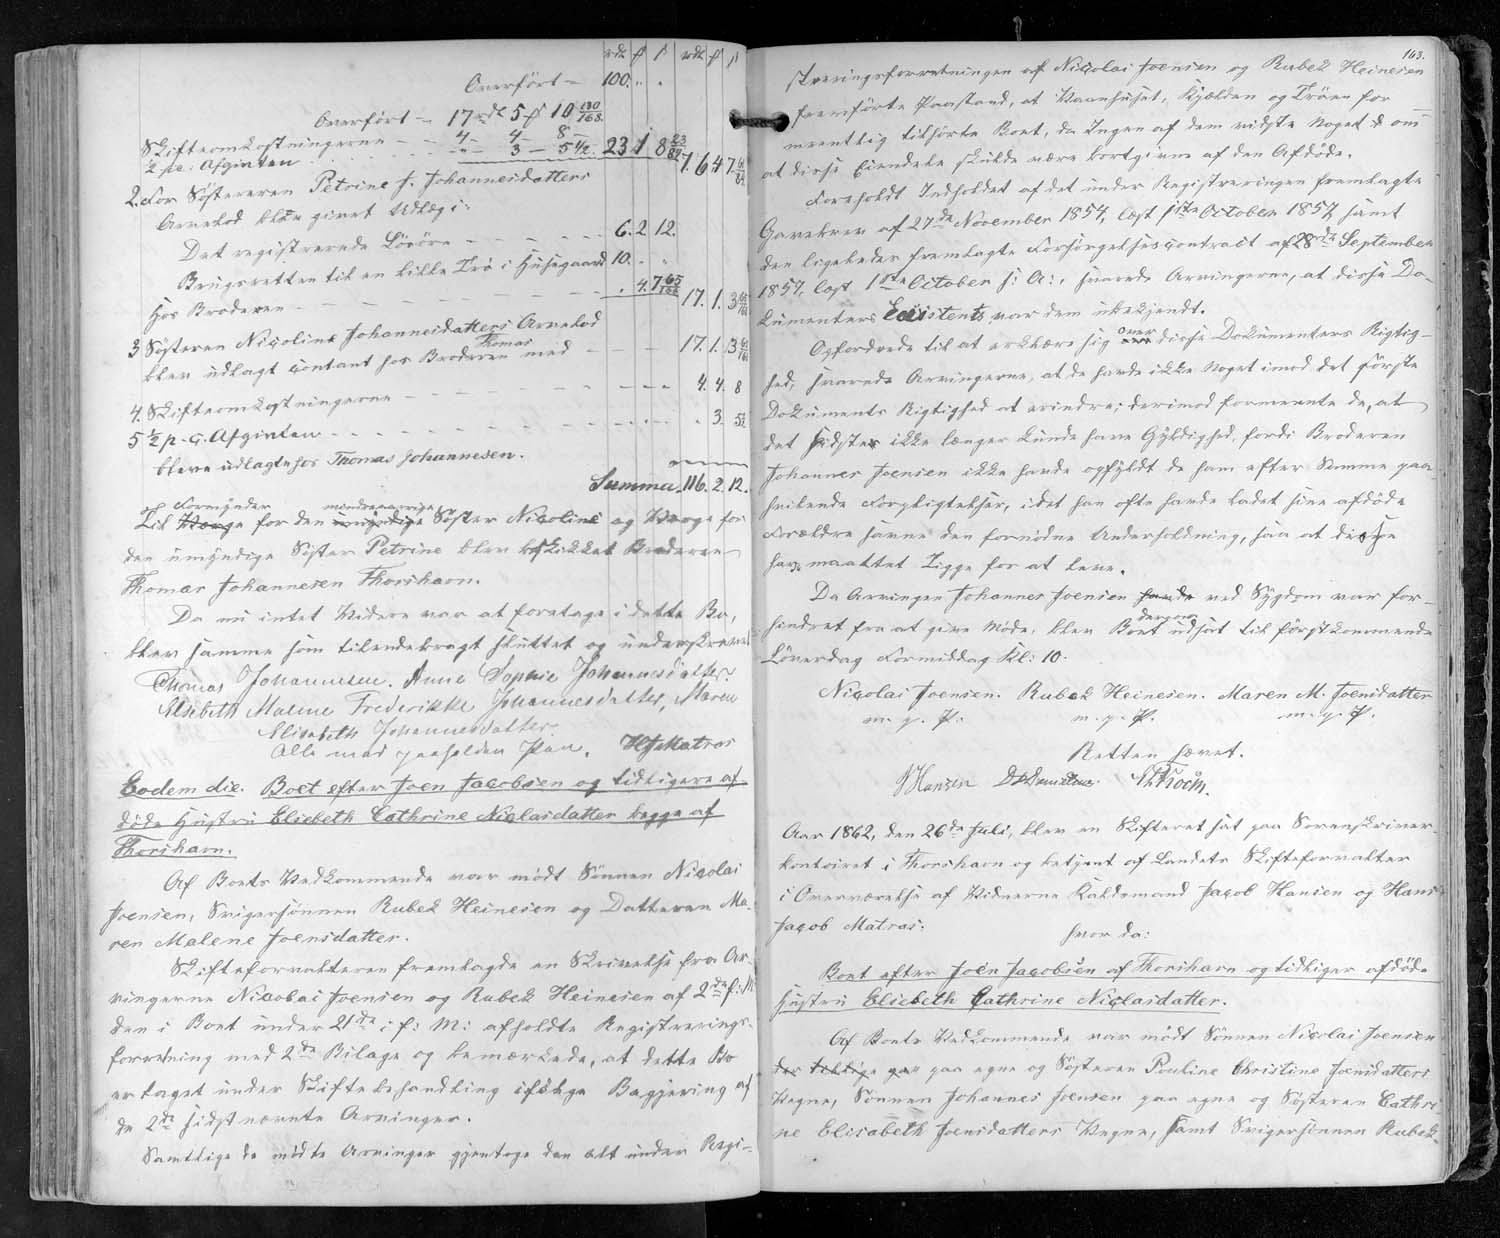 rdl ß rdl ß
Overført — 100. „ „
Overført — 17 rdl 5 ß 10 130/168
Skifteomkostningerne — — 4 — 4 — 8 —
½ pc. Afgiften — — „ — 3 — 5½. 23 1 8
2. For Søsteren Petrine J. Johannesdatters
Arvelod blev givet Udlæg i:
Det registrerede Løsøre — — — — 6. 2 12.
Brugsretten til en lille Trø i Husegaard 10. „ „
hos Broderen — — — — — — „ 4. 7 17. 1. 3
3 Søsteren Nicoline Johannesdatters Arvelod
Thomas
blev udlagt contant hos Broderen med — — — 17. 1. 3
4. Skifteomkostningerne — — — — — 4. 4. 8
5 ½ p. c. Afgiften — — — — — „ 3. 5½
bleve udlagte hos Thomas Johannesen.
Summa. 116. 2. 12.
og Formynder mindreaarige
Til Værge for den umyndige Søster Nicoline og Værge for
den umyndige Søster Petrine blev beskikket Broderen
Thomas Johannesen Thorshavn.
Da nu intet Videre var at foretage i dette Bo,
blev samme som tilendebragt sluttet og underskrevet
Thomas Johannesen. Anne Sophie Johannesdatter.
Elsebeth Malene Frederikke Johannesdatter, Maren
Elisabeth Johannesdatter.
Alle med paaholden Pen. HJMatras
Eodem die. Boet efter Joen Jacobsen og tidligere af-
døde Hustru Elsebeth Cathrine Niclasdatter begge af
Thorshavn.
Af Boets Vedkommende var mødt Sønnen Nicolai
Joensen, Svigersønnen Rubek Heinesen og Datteren Ma-
ren Malene Joensdatter.
Skifteforvalteren fremlagde en Skrivelse fra Ar-
vingerne Nicolai Joensen og Rubek Heinesen af 2den f: M:
den i Boet under 21de i f: M: afholdte Registrerings-
forretning med 2de Bilage og bemærkede, at dette Bo
er taget under Skiftebehandling ifølge Begjering af
de 2de sidstnævnte Arvinger.
Samtlige de mødte Arvinger gjentoge den alt under Regi-
163.
streringsforretningen af Nicolai Joensen og Rubek Heinesen
fremførte Paastand, at Vaanhuset, Kjælden og Trøen for-
mentlig tilhørte Boet, da Ingen af dem vidste Noget om
at disse Eiendele skulde være bortgivne af den Afdøde.
Foreholdt Indholdet af det under Registreringen fremlagte
Gavebrev af 27de November 1854, læst 1ste October 1857, samt
den ligeledes fremlagte Forsørgelsescontract af 28de September
1857, læst 1ste October s: A:, svarede Arvingerne, at disse Do-
kumenters Existents var dem ubekjendt.
over
Opfordrede til at erklære sig disse Dokumenters Rigtig-
hed, svarede Arvingerne, at de havde ikke Noget imod det første
Dokuments Rigtighed at erindre; derimod formeente de, at
det sidste ikke længer kunde have Gyldighed, fordi Broderen
Johannes Joensen ikke havde opfyldt de ham efter Samme paa-
hvilende Forpligtelser, idet han ofte havde ladet sine afdøde
Forældre savne den fornødne Underholdning, saa at disse
have maattet Tigge for at leve.
Da Arvingen Johannes Joensen havde ved Sygdom var for-
derpaa
hindret fra at give Møde, blev Boet udsat til førstkommende
Løverdag Formiddag Kl: 10.
Nicolai Joensen. Rubek Heinesen. Maren M. Joensdatter
m. p. P. m. p. P. m. p. P.
Retten hævet.
JHansen DDanielsen.
Aar 1862, den 26de Juli, blev en Skifteret sat paa Sorenskriver-
kontoiret i Thorshavn og betjent af Landets Skifteforvalter
i Overværelse af Vidnerne Kaldsmand Jacob Hansen og Hans
Jacob Matras:
hvor da:
Boet efter Joen Jacobsen af Thorshavn og tidligere afdøde
Hustru Elsebeth Cathrine Niclasdatter.
Af Boets Vedkommende var mødt Sønnen Nicolai Joensen
paa egne og Søsteren Pouline Christine Joensdatters
Vegne, Sønnen Johannes Joensen paa egne og Søsteren Cathri-
ne Elisabeth Joensdatters Vegne, samt Svigersønnen Rubek